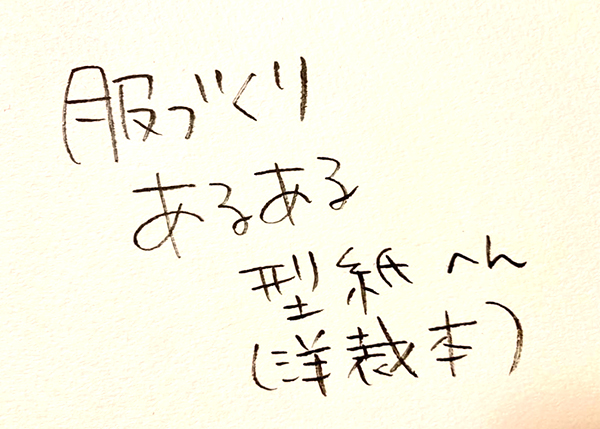 服づくり
あるある
型紙へん
(洋裁本)